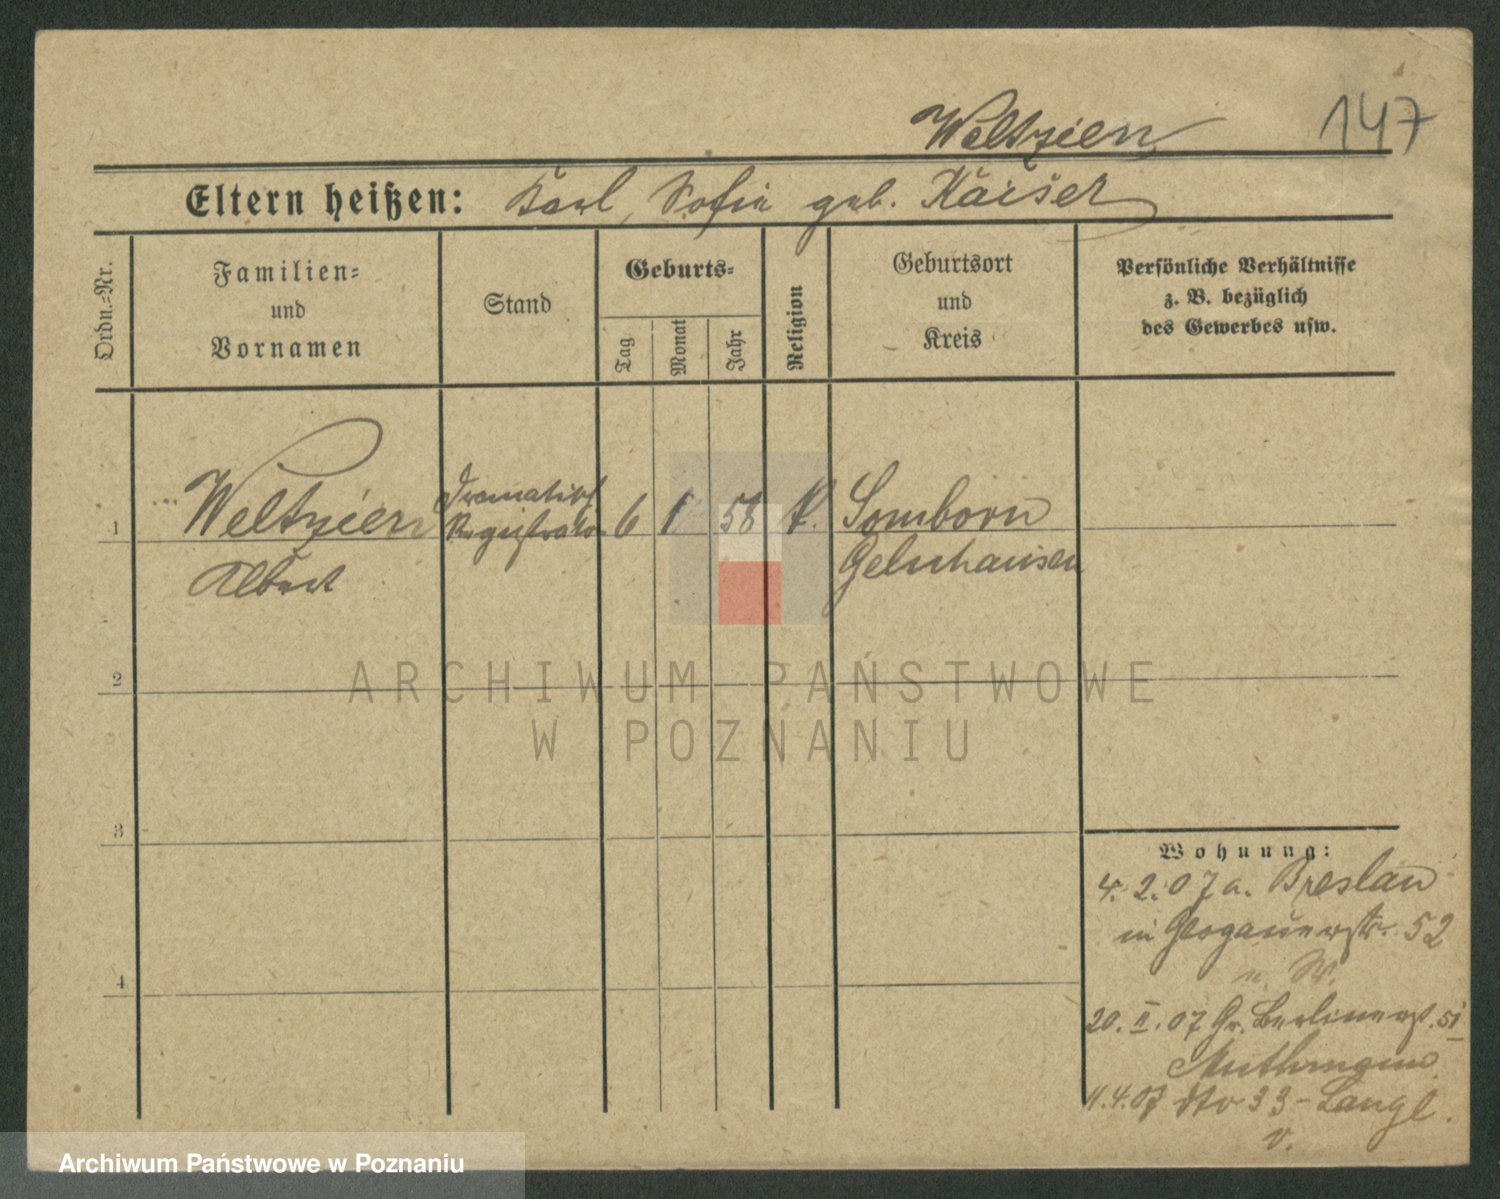 Weltzien 147
Eltern heißen: Karl, Sofie geb. Kaiser
Ordn.=Nr.
Familien=
und
Vornamen
Stand
Geburts=
Tag
Monat
Jahr
Religion
Geburtsort
und
Kreis
Persönliche Verhältnisse
z. B. bezüglich
des Gewerbes usw.
1
Weltzien
Albert
6 1 58 k.
Somborn
Gelnhausen
2
3
4
Wohnung:
4. 2. 07 a. Breslau
in Glogauerstr. 52
20. II. 07 Gr. Berlinerst. 51
11.4.07 dto 33 - Lange
v.
ARCHIWUM PAŃSTWOWE
W POZNANIU
Archiwum Państwowe w Poznaniu